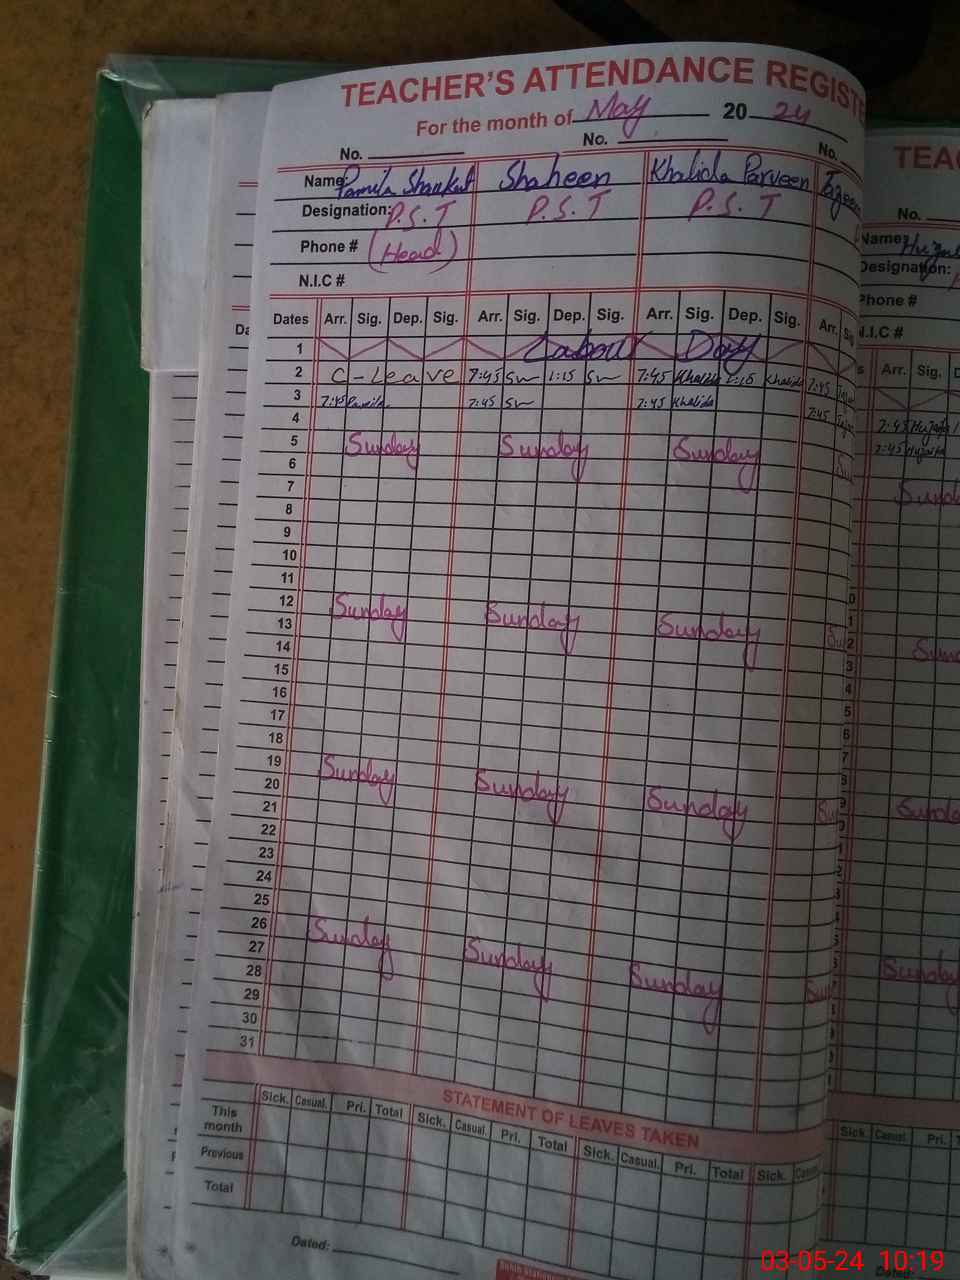 TEACHER'S ATTENDANCE REGISTE
For the month of May 20 24
No. No. No.
Name: Pamila Shaukat Shaheen Khalida Parveen
Designation: P.S.T P.S.T P.S.T
Phone # (Head)
N.I.C #
Dates Arr. Sig. Dep. Sig. Arr. Sig. Dep. Sig. Arr. Sig. Dep. Sig. Arr. Sig
1 Labour Day
2 C-Leave 7:45 1:15 7:45 Khalida 1:15 Khalida 7:45
3 7:45 Pamila 7:45 7:45 Khalida 7:45
4
5 Sunday Sunday Sunday Su
6
7
8
9
10
11
12 Sunday Sunday Sunday Su
13
14
15
16
17
18
19 Sunday Sunday Sunday Su
20
21
22
23
24
25
26 Sunday Sunday Sunday Sun
27
28
29
30
31
STATEMENT OF LEAVES TAKEN
Sick. Casual. Pri. Total Sick. Casual. Pri. Total Sick. Casual. Pri. Total Sick.
This month
Previous
Total
Dated:
TEAC
No.
Name:
Designation:
Phone #
N.I.C #
Arr. Sig.
7:45
7:45
Sund
Sund
Sunda
Sunday
Sick. Casual. Pri.
03-05-24 10:19